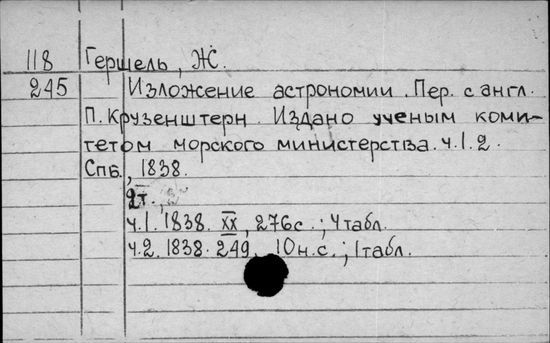 118 Гершель, Ж.
245 Изложение астрономии. Пер. с англ.
П. Крузенштерн. Издано ученым коми-
тетом морского министерства. ч.1.2.
Спб., 1838.
2т.,
ч.1. 1838. XX, 276с.; 4табл.
ч.2. 1838. 249, 10н.с.; 1табл.